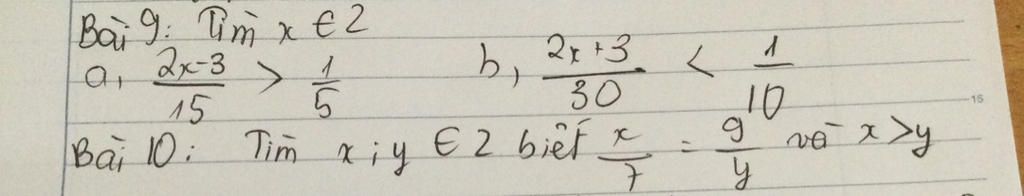 Bài 9: Tìm x ∈ Z
a, \frac{2x-3}{15} > \frac{1}{5} b, \frac{2x+3}{30} < \frac{1}{10}
Bài 10: Tìm x; y ∈ Z biết \frac{x}{7} = \frac{9}{y} và x > y